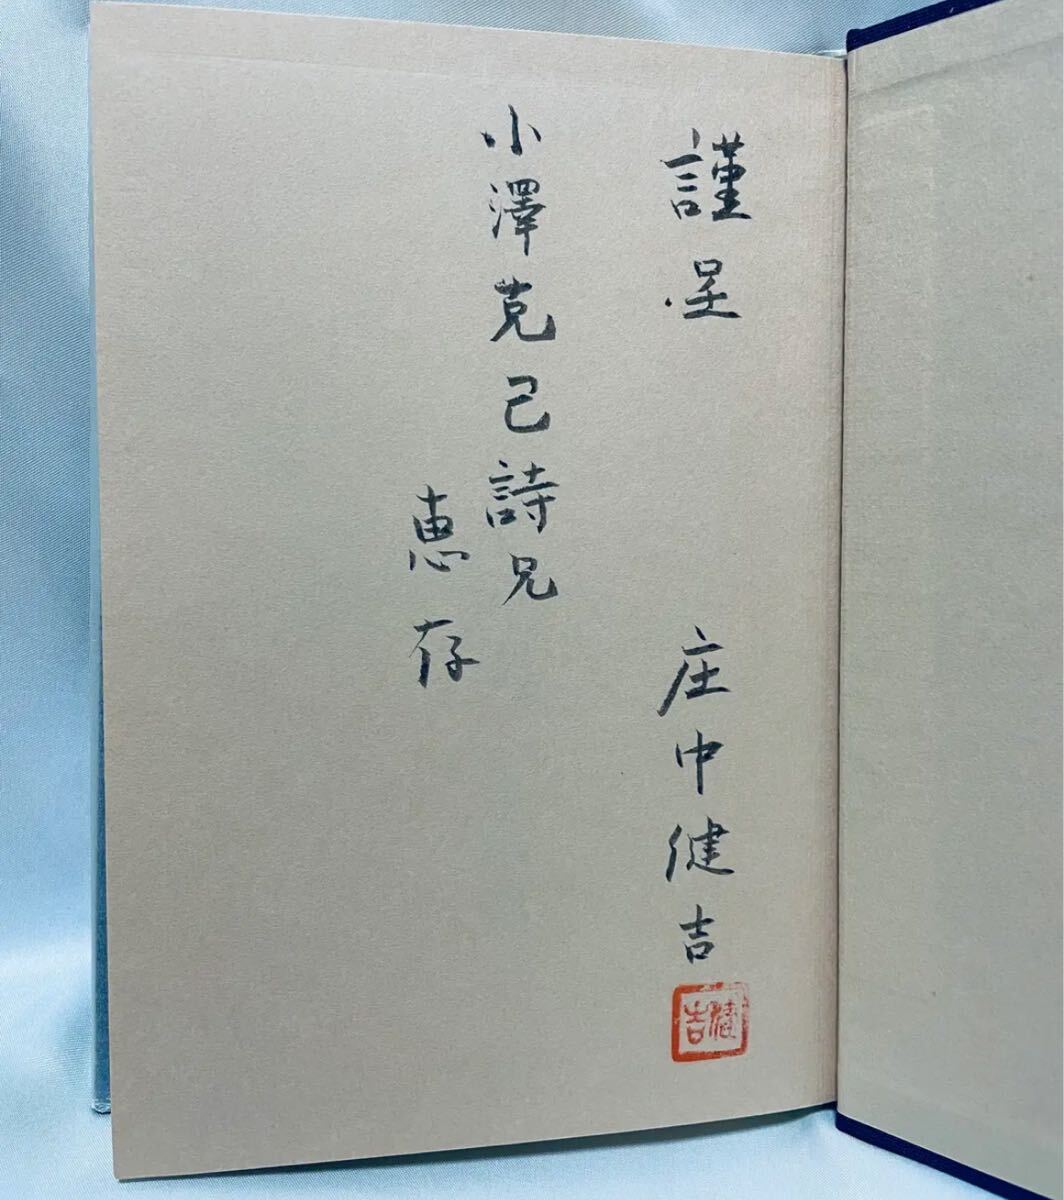 謹呈 庄中健吉
小澤克己詩兄
恵存
健吉